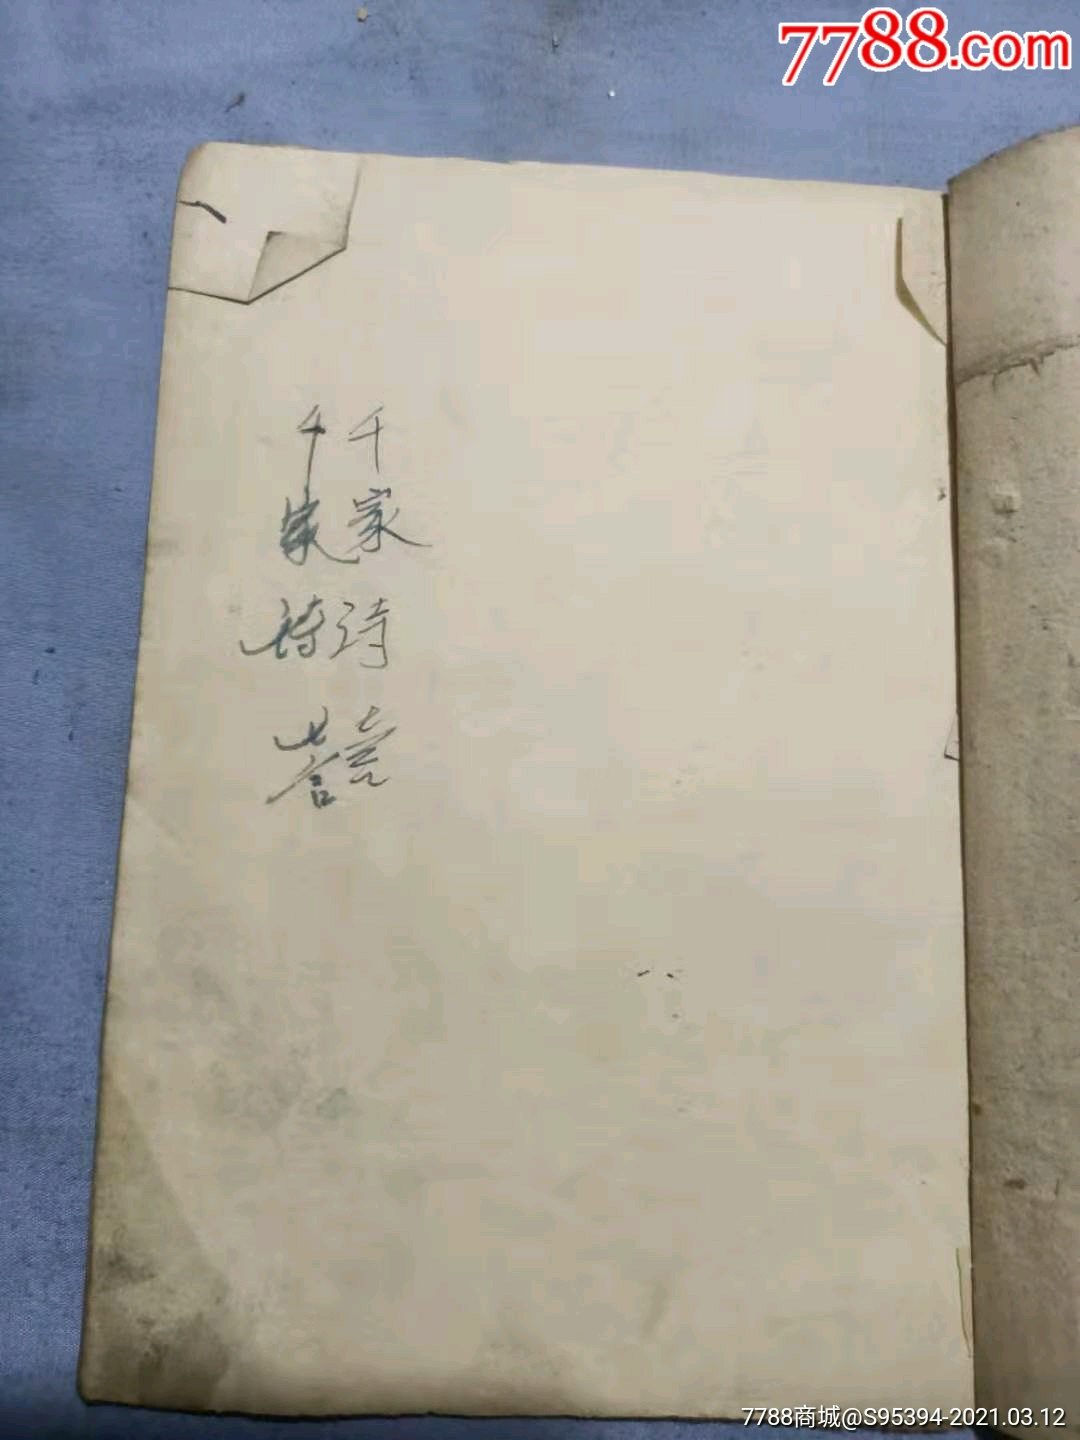 7788.com
千家诗
千家诗
7788商城@S95394-2021.03.12